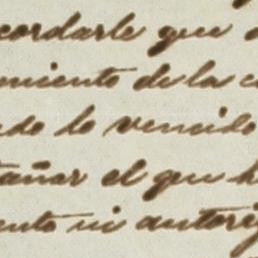 cordarle que
miento de la c
do lo vencido
tañar el que h
ento ni autoriz